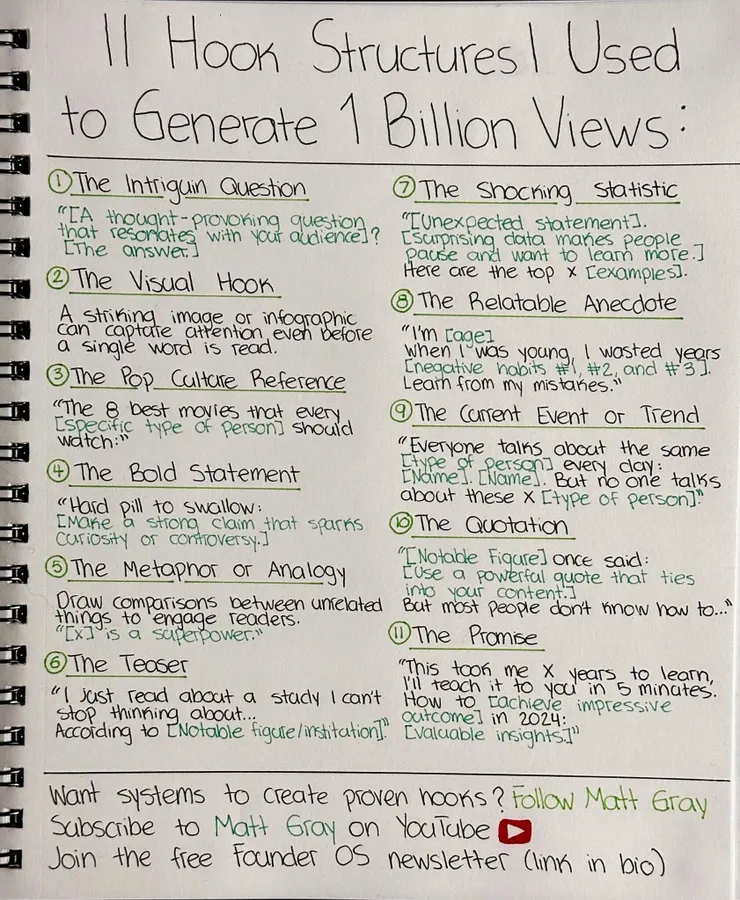 11 Hook Structures I Used
to Generate 1 Billion Views:
① The Intriguin Question
"[A thought-provoking question
that resonates with your audience]?
[The answer.]
② The Visual Hook
A striking image or infographic
can captate attention even before
a single word is read.
③ The Pop Culture Reference
"The 8 best movies that every
[specific type of person] should
watch:"
④ The Bold Statement
"Hard pill to swallow:
[Make a strong claim that sparks
curiosity or controversy.]
⑤ The Metaphor or Analogy
Draw comparisons between unrelated
things to engage readers.
"[x] is a superpower."
⑥ The Teaser
"I Just read about a study I can't
stop thinking about...
According to [Notable figure/institution]."
⑦ The Shocking Statistic
"[Unexpected statement].
[Surprising data makes people
pause and want to learn more.]
Here are the top x [examples].
⑧ The Relatable Anecdote
"I'm [age]
when I was young, I wasted years
[negative habits #1, #2, and #3].
Learn from my mistakes."
⑨ The Current Event or Trend
"Everyone talks about the same
[type of person] every day:
[Name]. [Name]. But no one talks
about these X [type of person]:"
⑩ The Quotation
"[Notable Figure] once said:
[Use a powerful quote that ties
into your content.]
But most people don't know how to..."
⑪ The Promise
"This took me X years to learn,
I'll teach it to you in 5 minutes.
How to [achieve impressive
outcome] in 2024:
[Valuable insights]"
Want systems to create proven hooks? Follow Matt Gray
Subscribe to Matt Gray on YouTube
Join the free Founder OS newsletter (link in bio)